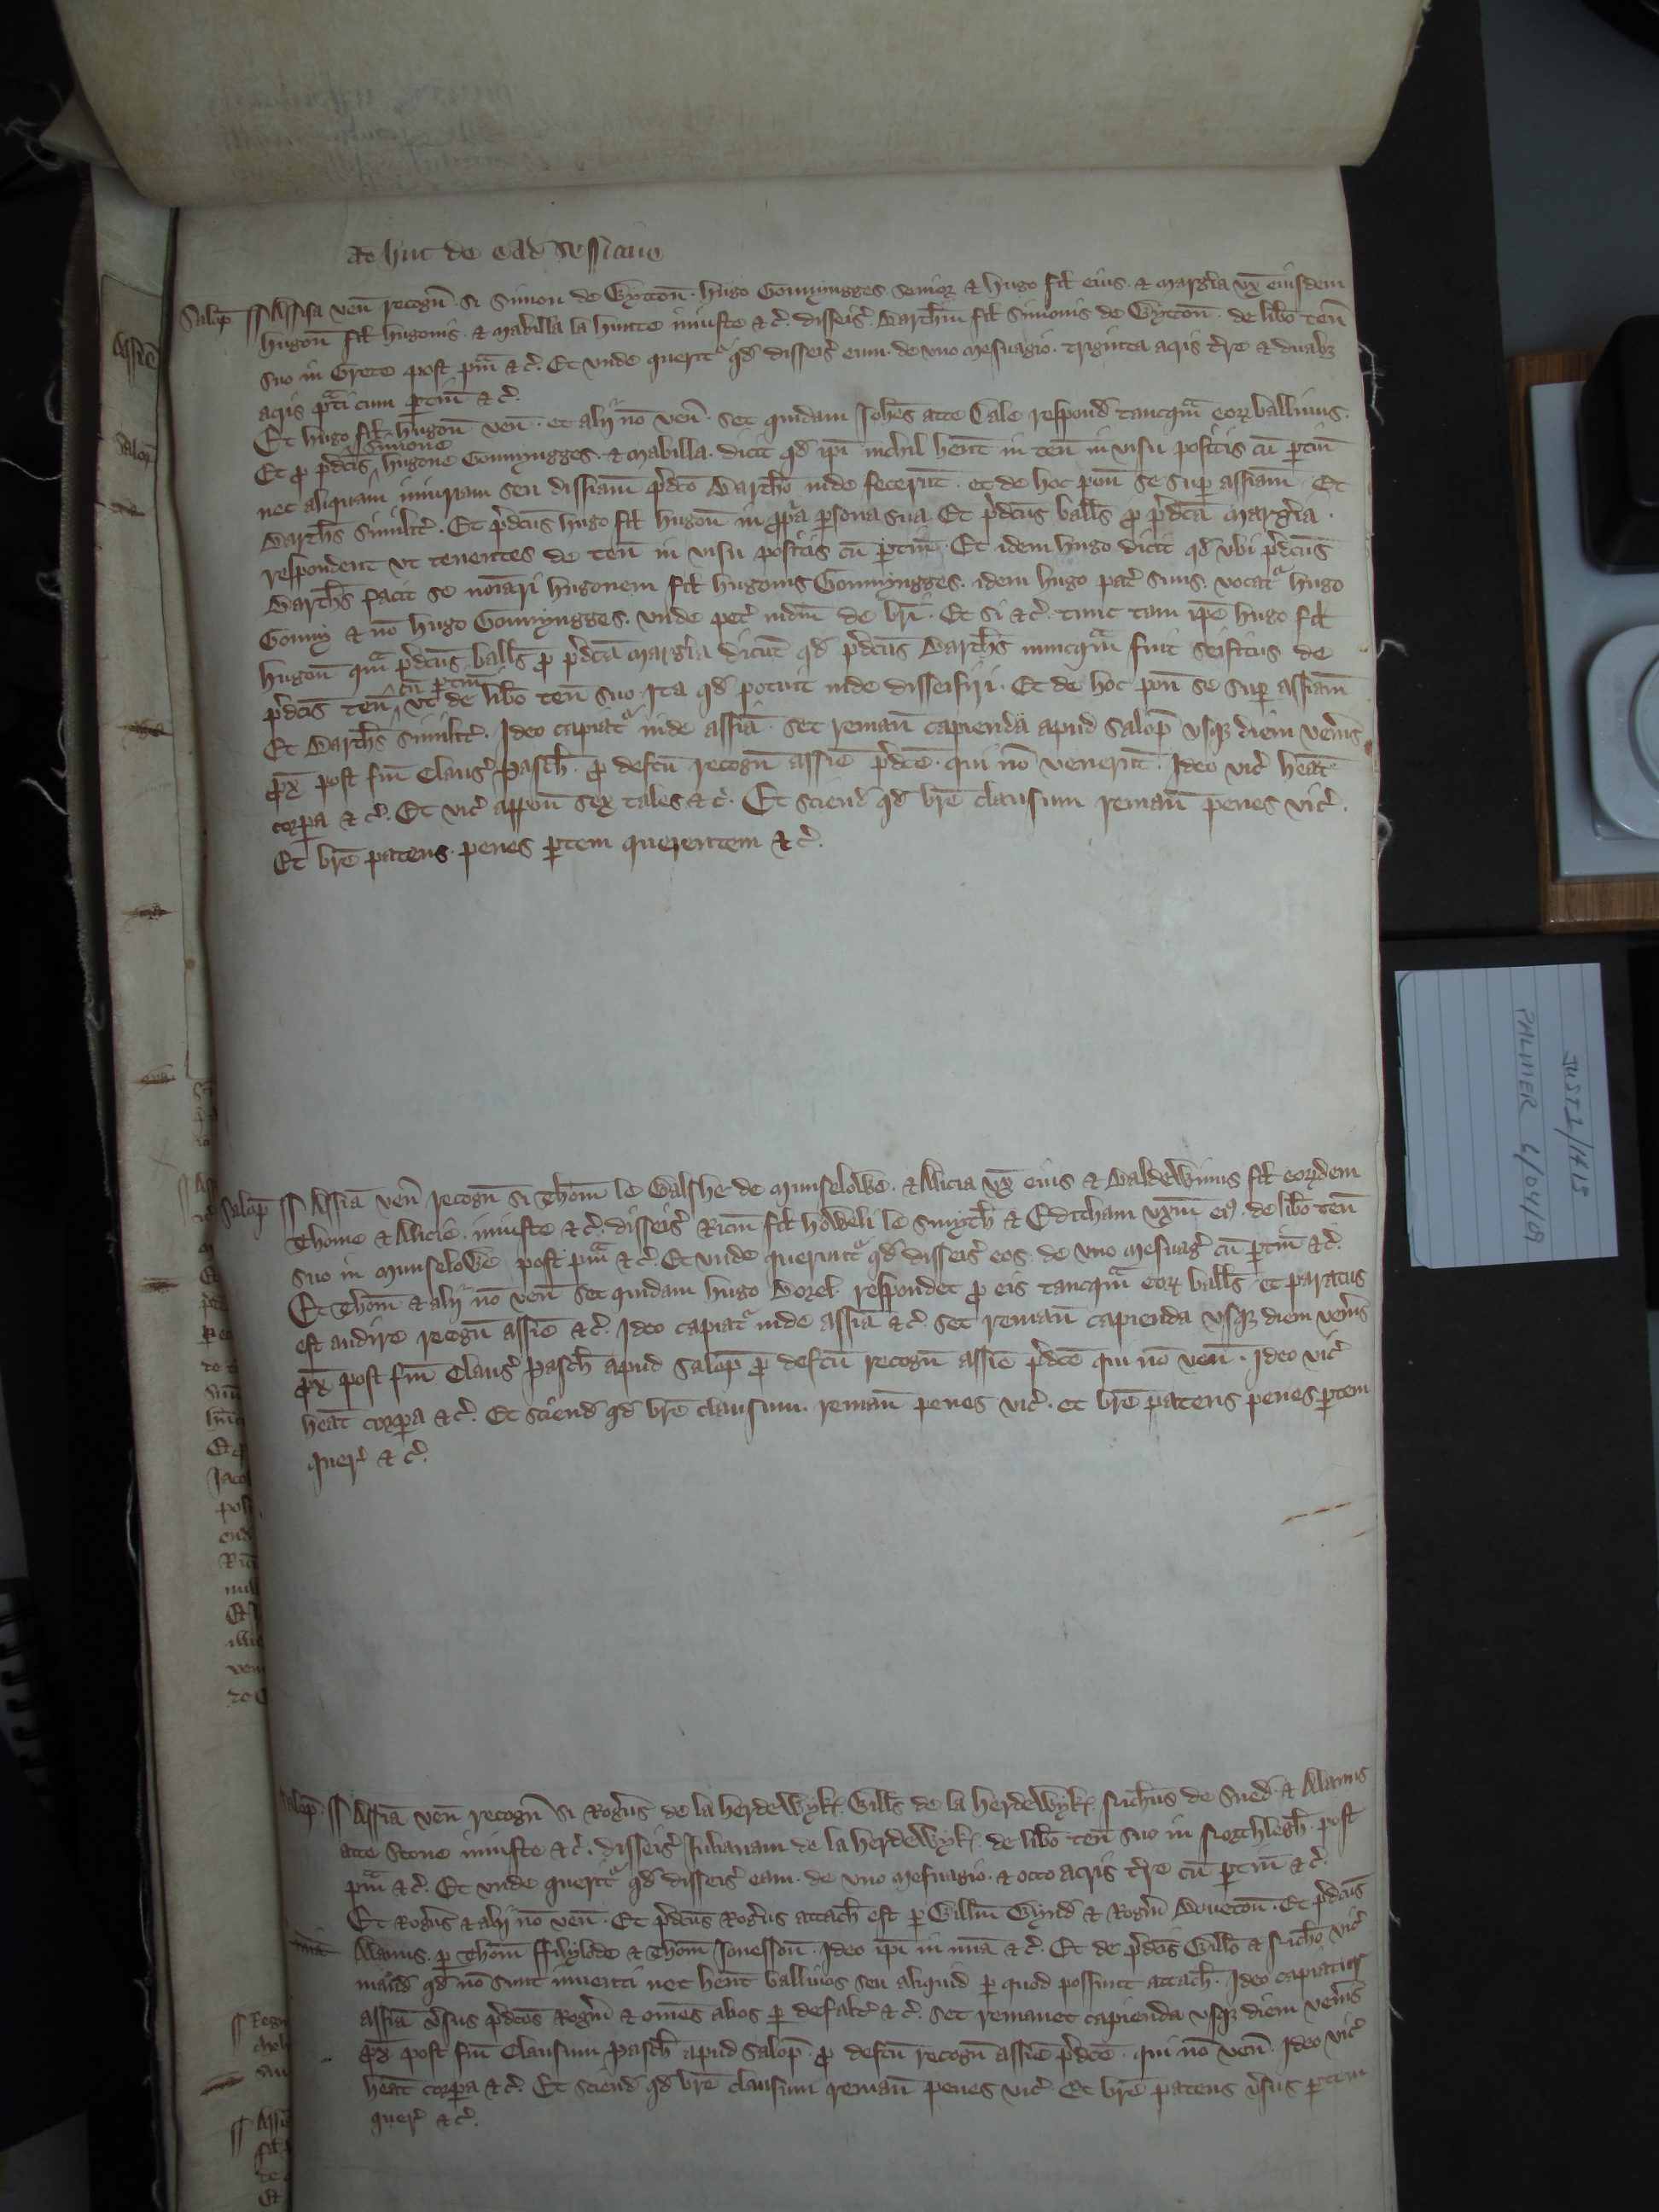 Adhuc de ead sessione
Salop Assisa ven recogn si Simon de Gytton. hugo Gonnyngges senior & hugo fil eius. & margia ux eiusdem
hugon fil hugonis. & mabilla la hunte iniuste &c. disseis. Barthm fil Simonis de Gytton. de libo ten
suo in Grete post pm &c. Et unde querit qd disseis eum. de uno mesuagio. triginta acris tre & duabz
acris pti cum ptin &c.
Et hugo fil hugon ven. et alij no ven. Set quidam Johes atte Cale respond tanqm eor ballivus.
Et p pdcis Simone hugone Gonnyngges. & mabilla. dicit qd ipi nichil hent in ten in visu positis cu ptin
nec aliquam iniuriam seu dissiam pdco Bartho inde fecerut. et de hoc pon se sup assiam. Et
Barths similit. Et pdcus hugo fil hugon in ppa psona sua Et pdcus balls p pdca margia.
respondent ut tenentes de ten in visu positis cu ptin. Et idem hugo dicit qd ubi pdcus
Barths facit se noiari hugonem fil hugonis Gonnyngges. idem hugo pat suus. vocat hugo
Gonny & no hugo Gonnyngges. unde pet iudm de bri. Et si &c. tunc tam ipe hugo fil
hugon qm pdcus balls p pdca margia dicut qd pdcus Barths nuncqm fuit seisitus de
pdcis ten cu ptin ut de libo ten suo. Ita qd potuit inde disseisiri. Et de hoc pon se sup assiam
Et Barths similit. Ideo capiat inde assia. Set reman capienda apud Salop usqz diem venis
px post fm Claus pasch. p defcu recogn assie pdce. qui no venerut. Ideo vic heat
corpa &c. Et vic appon sex tales &c. Et sciend qd bre clausum reman penes vic.
Et bre patens. penes ptem querentem &c.
Salop Assia ven recogn si Thom le Walshe de munselowe. & Alicia ux eius & Baldewinus fil eordem
Thome & Alicie. iniuste &c. disseis Ricm fil howeli le Smyth & Editham uxm ei. de libo ten
suo in munselowe post pm &c. Et unde querunt qd disseis eos. de uno mesuag cu ptin &c.
Et Thom & alij no ven Set quidam hugo Borel. respondet p eis tancqm eor balls. et paratus
est audire recogn assie &c. Ideo capiat inde assia &c. Set reman capienda usqz diem venis
px post fm Claus pasch apud Salop p defcu recogn assie pdce qui no ven. Ideo vic
heat corpa &c. Et sciend qd bre clausum. reman penes vic. et bre patens penes ptem
quer &c.
Salop. Assia ven recogn si Rogus de la herdewyk. Wills de la herdewyk. Richus de Sned. & Alanus
atte Stone iniuste &c. disseis Julianam de la herdewyk. de libo ten suo in post
pm &c. Et unde querit qd disseis eam. de uno mesuagio. & octo acris tre cu ptin &c.
Et Rogus & alij no ven. Et pdcus Rogus attach est p Willm Wynd & Rogm Boveton. Et pdcus
mia Alanus. p Thom ffilylode & Thom Jonesson. Ideo ipi in mia &c. Et de pdcis Willo & Richo vic
mand qd no sunt inventi nec hent ballivos seu aliquid p quod possunt attach. Ideo capiatur
assia vsus pdcos Rogm & omes alios p defalt &c. Set remanet capienda usqz diem venis
px post fm Clausum pasch apud Salop. p defcu recogn assie pdce. qui no ven. Ideo vic
heat corpa &c. Et sciend qd bre clausum reman penes vic. Et bre patens vsus ptem
quer &c.
JUST 1/1413
PALMER 6/04/09